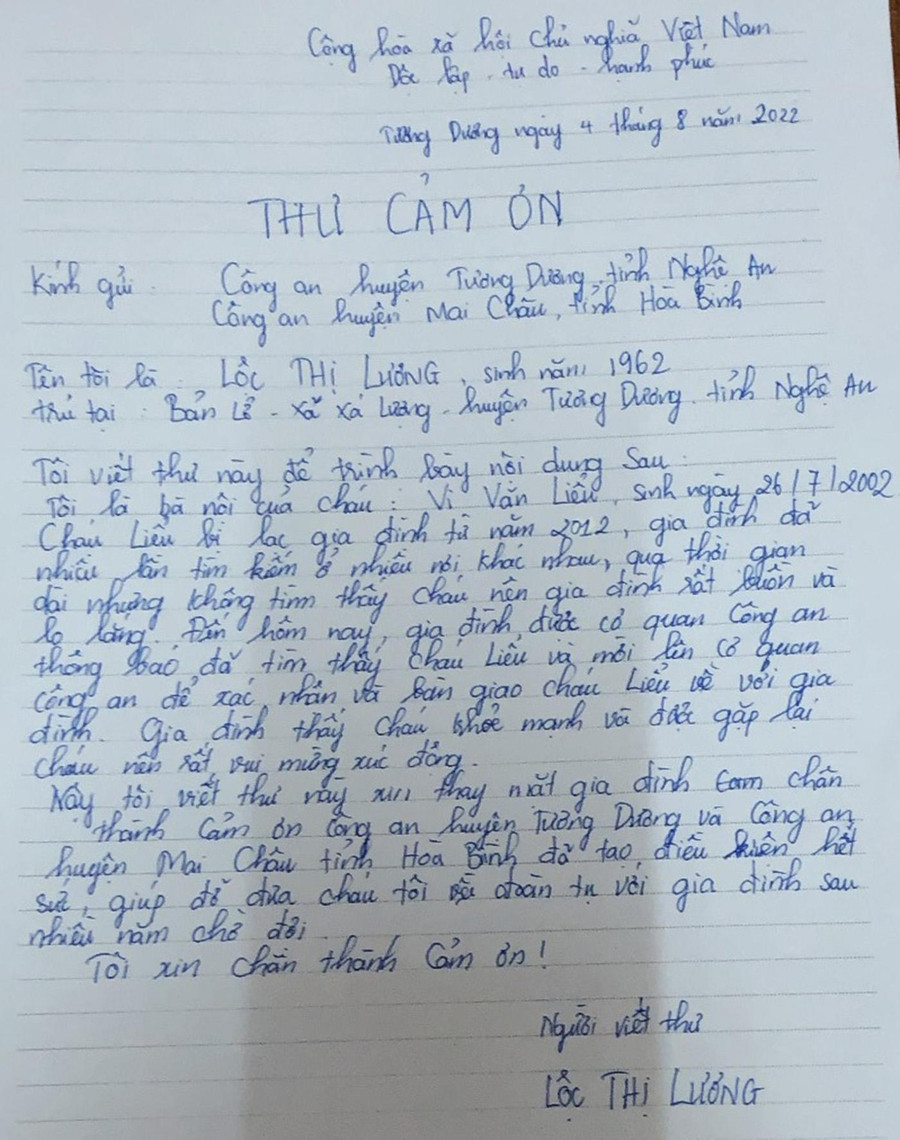 Cộng hòa xã hội chủ nghĩa Việt Nam
Độc lập - tự do - hạnh phúc
Tương Dương ngày 4 tháng 8 năm 2022
THƯ CẢM ƠN
Kính gửi : Công an huyện Tương Dương, tỉnh Nghệ An
Công an huyện Mai Châu, tỉnh Hòa Bình
Tên tôi là : LỘC THỊ LƯƠNG, sinh năm 1962
trú tại : Bản Lẻ - xã xá Lượng - huyện Tương Dương - tỉnh Nghệ An
Tôi viết thư này để trình bày nội dung Sau :
Tôi là bà nội của cháu : Vi Văn Liểu, sinh ngày 26/7/2002
Cháu Liểu bị lạc gia đình từ năm 2012, gia đình đã
nhiều lần tìm kiếm ở nhiều nơi khác nhau, qua thời gian
dài nhưng không tìm thấy cháu nên gia đình rất buồn và
lo lắng. Đến hôm nay, gia đình được cơ quan Công an
thông báo đã tìm thấy cháu Liểu và mời lên cơ quan
công an để xác nhận và bàn giao cháu Liểu về với gia
đình. Gia đình thấy cháu khỏe mạnh và được gặp lại
cháu nên rất vui mừng xúc động.
Nay tôi viết thư này xin thay mặt gia đình cảm chân
thành cảm ơn công an huyện Tương Dương và Công an
huyện Mai Châu tỉnh Hòa Bình đã tạo điều kiện hết
sức, giúp đỡ đưa cháu tôi về đoàn tụ với gia đình sau
nhiều năm chờ đợi.
Tôi xin chân thành cảm ơn!
Người viết thư
LỘC THỊ LƯƠNG